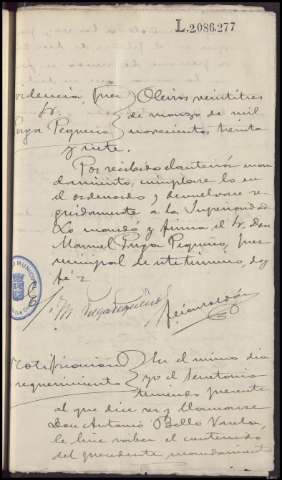 L.2086.277
Providencia Juez } Oleiros veintitres
Sr. } de marzo de mil
Puga Pequeño } novecientos treinta
y siete.
Por recibido el anterior man
damiento, cumplase lo en
el ordenado, y devuelvase se
guidamente a la Superioridad
Lo mandó y firma el Sr. Don
Manuel Puga Pequeño, Juez
municipal de este termino, doy
fé =
M. Puga Pequeño
Notificacion } En el mismo dia
requerimiento } yo el Secretario
teniendo presente
al que dice ser y llamarse
Don Antonio Bello Varela,
le hice saber el contenido
del precedente mandamiento